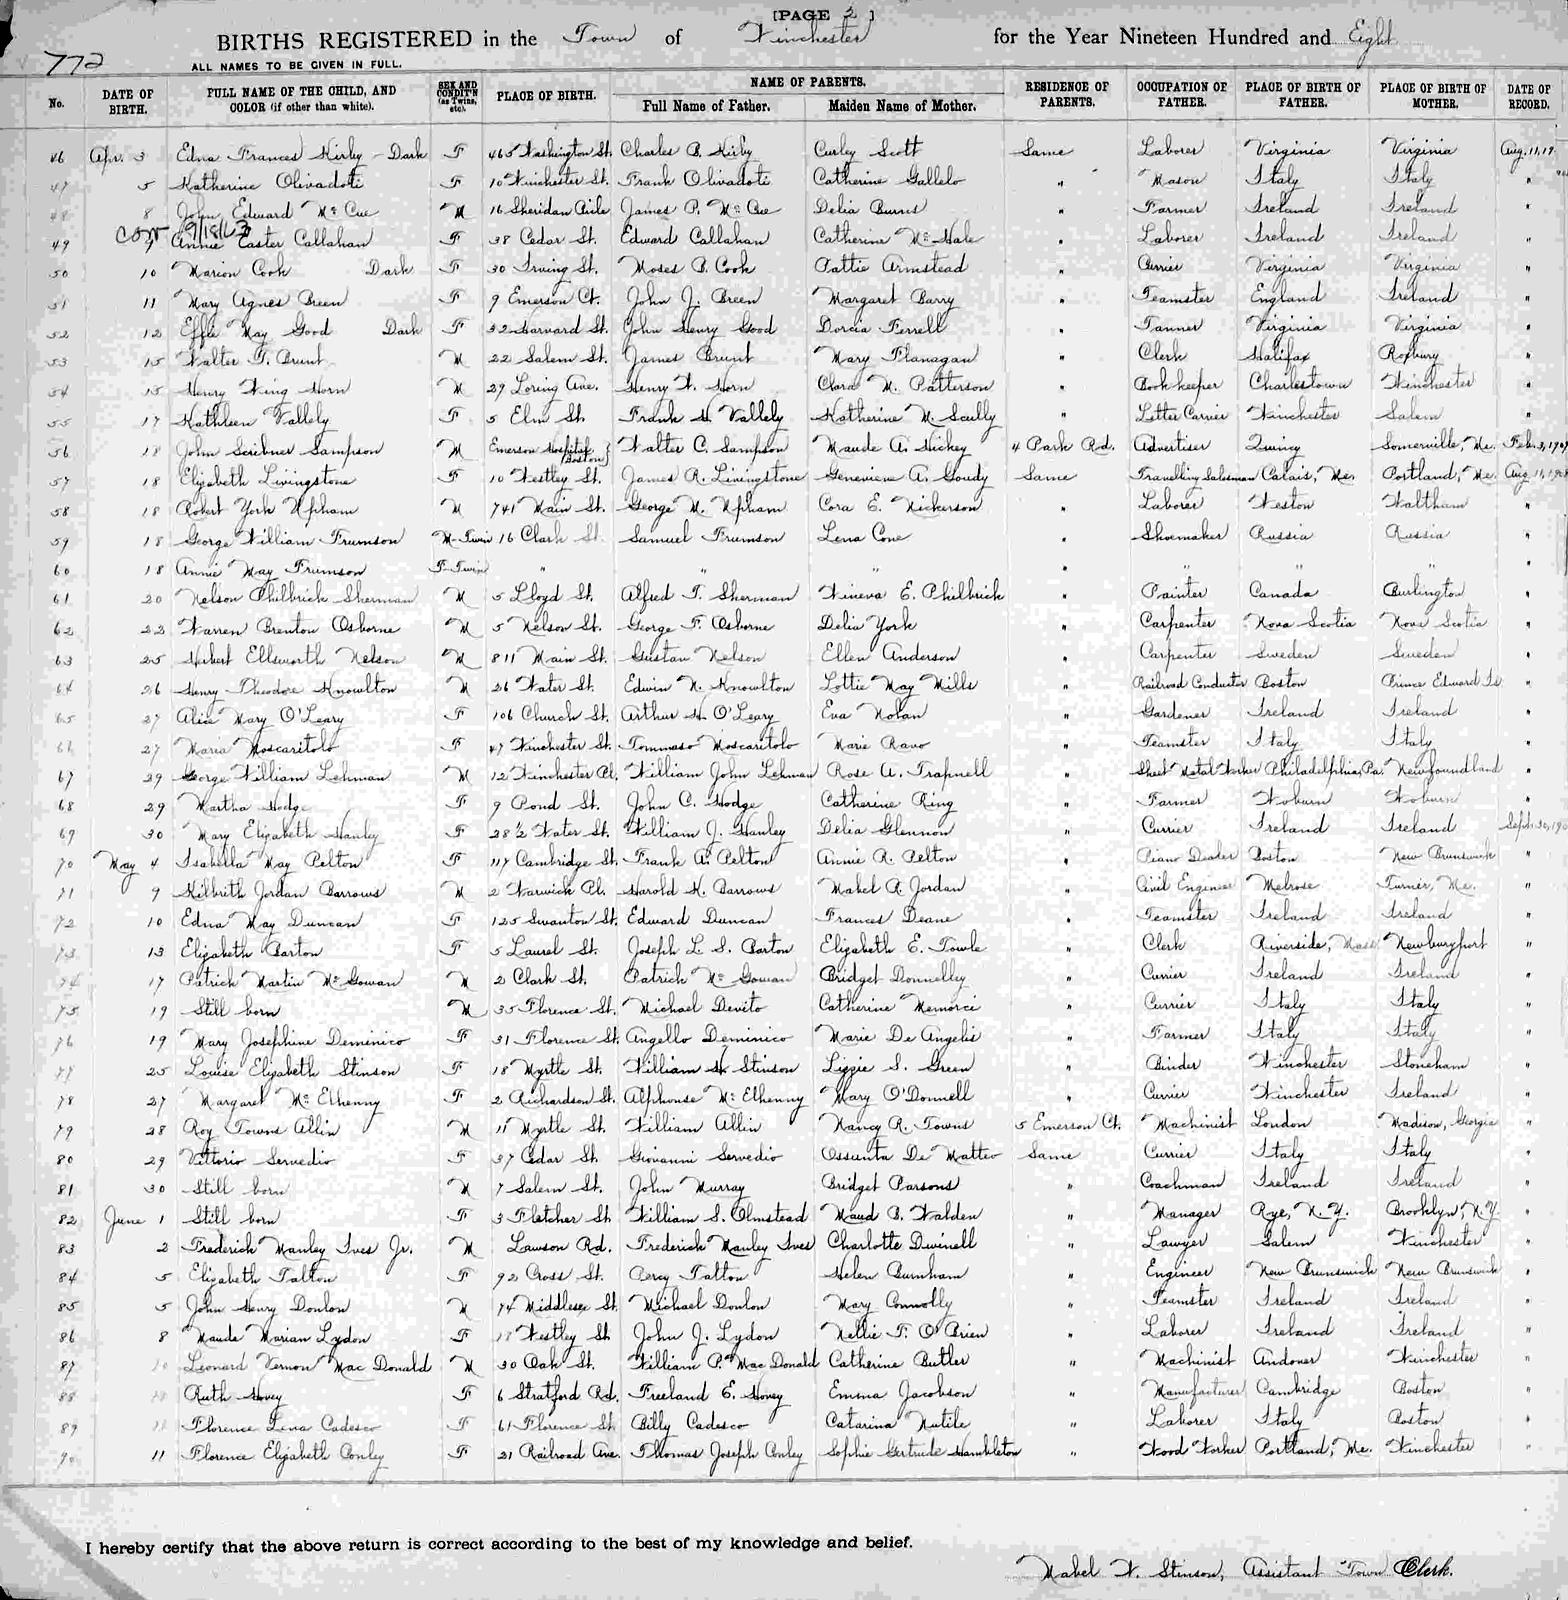 [PAGE 2]
BIRTHS REGISTERED in the Town of Winchester for the Year Nineteen Hundred and Eight
772
ALL NAMES TO BE GIVEN IN FULL.
No. DATE OF BIRTH. FULL NAME OF THE CHILD, AND COLOR (if other than white). SEX AND CONDIT'N (as Twins, etc). PLACE OF BIRTH. NAME OF PARENTS. Full Name of Father. Maiden Name of Mother. RESIDENCE OF PARENTS. OCCUPATION OF FATHER. PLACE OF BIRTH OF FATHER. PLACE OF BIRTH OF MOTHER. DATE OF RECORD.
46 Apr. 3 Edna Frances Kirby - Dark F 465 Washington St. Charles B. Kirby Curley Scott Same Laborer Virginia Virginia Aug. 11, 19
47 5 Katherine Olivadoti F 10 Winchester St. Frank Olivadoti Catherine Gallelo " Mason Italy Italy "
48 8 John Edward McCue M 16 Sheridan Circle James P. McCue Delia Burns " Farmer Ireland Ireland "
Corr 9/18/63
49 9 Annie Easter Callahan F 38 Cedar St. Edward Callahan Catherine McHale " Laborer Ireland Ireland "
50 10 Marion Cook Dark F 30 Irving St. Moses B. Cook Pattie Armstead " Currier Virginia Virginia "
51 11 Mary Agnes Breen F 9 Emerson Ct. John J. Breen Margaret Barry " Teamster England Ireland "
52 12 Effie May Good Dark F 32 Harvard St. John Henry Good Dorcia Ferrell " Tanner Virginia Virginia "
53 15 Walter T. Brunt M 22 Salem St. James Brunt Mary Flanagan " Clerk Halifax Roxbury "
54 15 Henry Wing Horn M 29 Loring Ave. Henry W. Horn Clara M. Patterson " Bookkeeper Charlestown Winchester "
55 17 Kathleen Vallely F 5 Elm St. Frank H. Vallely Katherine M. Scully " Letter Carrier Winchester Salem "
56 18 John Scribner Sampson M Emerson Hospital Boston Walter C. Sampson Maude A. Hickey 4 Park Rd. Advertiser Quincy Somerville, Me. Feb. 3, 1909
57 18 Elizabeth Livingstone F 10 Westley St. James R. Livingstone Genevieve A. Goudy Same Travelling Salesman Calais, Me. Portland, Me. Aug. 11, 1908
58 18 Robert York Upham M 741 Main St. George M. Upham Cora E. Nickerson " Laborer Weston Waltham "
59 18 George William Frumson M-Twin 16 Clark St. Samuel Frumson Lena Cone " Shoemaker Russia Russia "
60 18 Annie May Frumson F-Twin " " " " " " " "
61 20 Nelson Philbrick Sherman M 5 Lloyd St. Alfred T. Sherman Wineva E. Philbrick " Painter Canada Burlington "
62 22 Warren Brenton Osborne M 5 Nelson St. George F. Osborne Delia York " Carpenter Nova Scotia Nova Scotia "
63 25 Herbert Ellsworth Nelson M 811 Main St. Gustav Nelson Ellen Anderson " Carpenter Sweden Sweden "
64 26 Henry Theodore Knowlton M 26 Water St. Edwin N. Knowlton Lottie May Mills " Railroad Conductor Boston Prince Edward Is. "
65 27 Alice Mary O'Leary F 106 Church St. Arthur H. O'Leary Eva Nolan " Gardener Ireland Ireland "
66 27 Maria Moscaritolo F 47 Winchester St. Tommaso Moscaritolo Marie Ravo " Teamster Italy Italy "
67 29 George William Lehman M 12 Winchester Pl. William John Lehman Rose A. Trapnell " Sheet Metal Worker Philadelphia, Pa. Newfoundland "
68 29 Martha Hodge F 9 Pond St. John C. Hodge Catherine Ring " Farmer Woburn Woburn "
69 30 Mary Elizabeth Hanley F 28 1/2 Water St. William J. Hanley Delia Glennon " Currier Ireland Ireland Sept. 30, 190
70 May 4 Isabella May Pelton F 117 Cambridge St. Frank A. Pelton Annie R. Pelton " Piano Dealer Boston New Brunswick "
71 9 Kilbrith Jordan Barrows M 2 Warwick Pl. Harold K. Barrows Mabel R. Jordan " Civil Engineer Melrose Turner, Me. "
72 10 Edna May Duncan F 125 Swanton St. Edward Duncan Frances Deane " Teamster Ireland Ireland "
73 13 Elizabeth Barton F 5 Laurel St. Joseph L. S. Barton Elizabeth E. Towle " Clerk Riverside, Mass. Newburyport "
74 17 Patrick Martin McGowan M 2 Clark St. Patrick McGowan Bridget Donnelley " Currier Ireland Ireland "
75 19 Still born M 35 Florence St. Michael Devito Catherine Memorci " Currier Italy Italy "
76 19 Mary Josephine Deminico F 31 Florence St. Angello Deminico Marie De Angelis " Farmer Italy Italy "
77 25 Louise Elizabeth Stinson F 18 Myrtle St. William H. Stinson Lizzie S. Green " Binder Winchester Stoneham "
78 27 Margaret McElhenny F 2 Richardson St. Alphonse McElhenny Mary O'Donnell " Currier Winchester Ireland "
79 28 Roy Towns Allin M 11 Myrtle St. William Allin Nancy R. Towns 5 Emerson Ct. Machinist London Madison, Georgia "
80 29 Vittorio Servedio F 37 Cedar St. Giovanni Servedio Ossunta De Matteo Same Currier Italy Italy "
81 30 Still born M 7 Salem St. John Murray Bridget Parsons " Coachman Ireland Ireland "
82 June 1 Still born F 3 Fletcher St. William S. Olmstead Maud B. Walden " Manager Rye, N.Y. Brooklyn, N.Y. "
83 2 Frederick Manley Ives Jr. M Lawson Rd. Frederick Manley Ives Charlotte Dwinell " Lawyer Salem Winchester "
84 5 Elizabeth Talton F 92 Cross St. Percy Talton Helen Burnham " Engineer New Brunswick New Brunswick "
85 5 John Henry Donlon M 74 Middlesex St. Michael Donlon Mary Connolly " Teamster Ireland Ireland "
86 8 Maude Marian Lydon F 18 Westley St. John J. Lydon Nellie F. O'Brien " Laborer Ireland Ireland "
87 10 Leonard Vernon MacDonald M 30 Oak St. William P. MacDonald Catherine Butler " Machinist Andover Winchester "
88 Ruth Hovey F 6 Stratford Rd. Freeland E. Hovey Emma Jacobson " Manufacturer Cambridge Boston "
89 11 Florence Lena Cadesco F 61 Florence St. Billy Cadesco Catarina Nutile " Laborer Italy Boston "
90 11 Florence Elizabeth Conley F 21 Railroad Ave. Thomas Joseph Conley Sophie Gertrude Hambleton " Wood Worker Portland, Me. Winchester "
I hereby certify that the above return is correct according to the best of my knowledge and belief.
Mabel W. Stinson, Assistant Town Clerk.